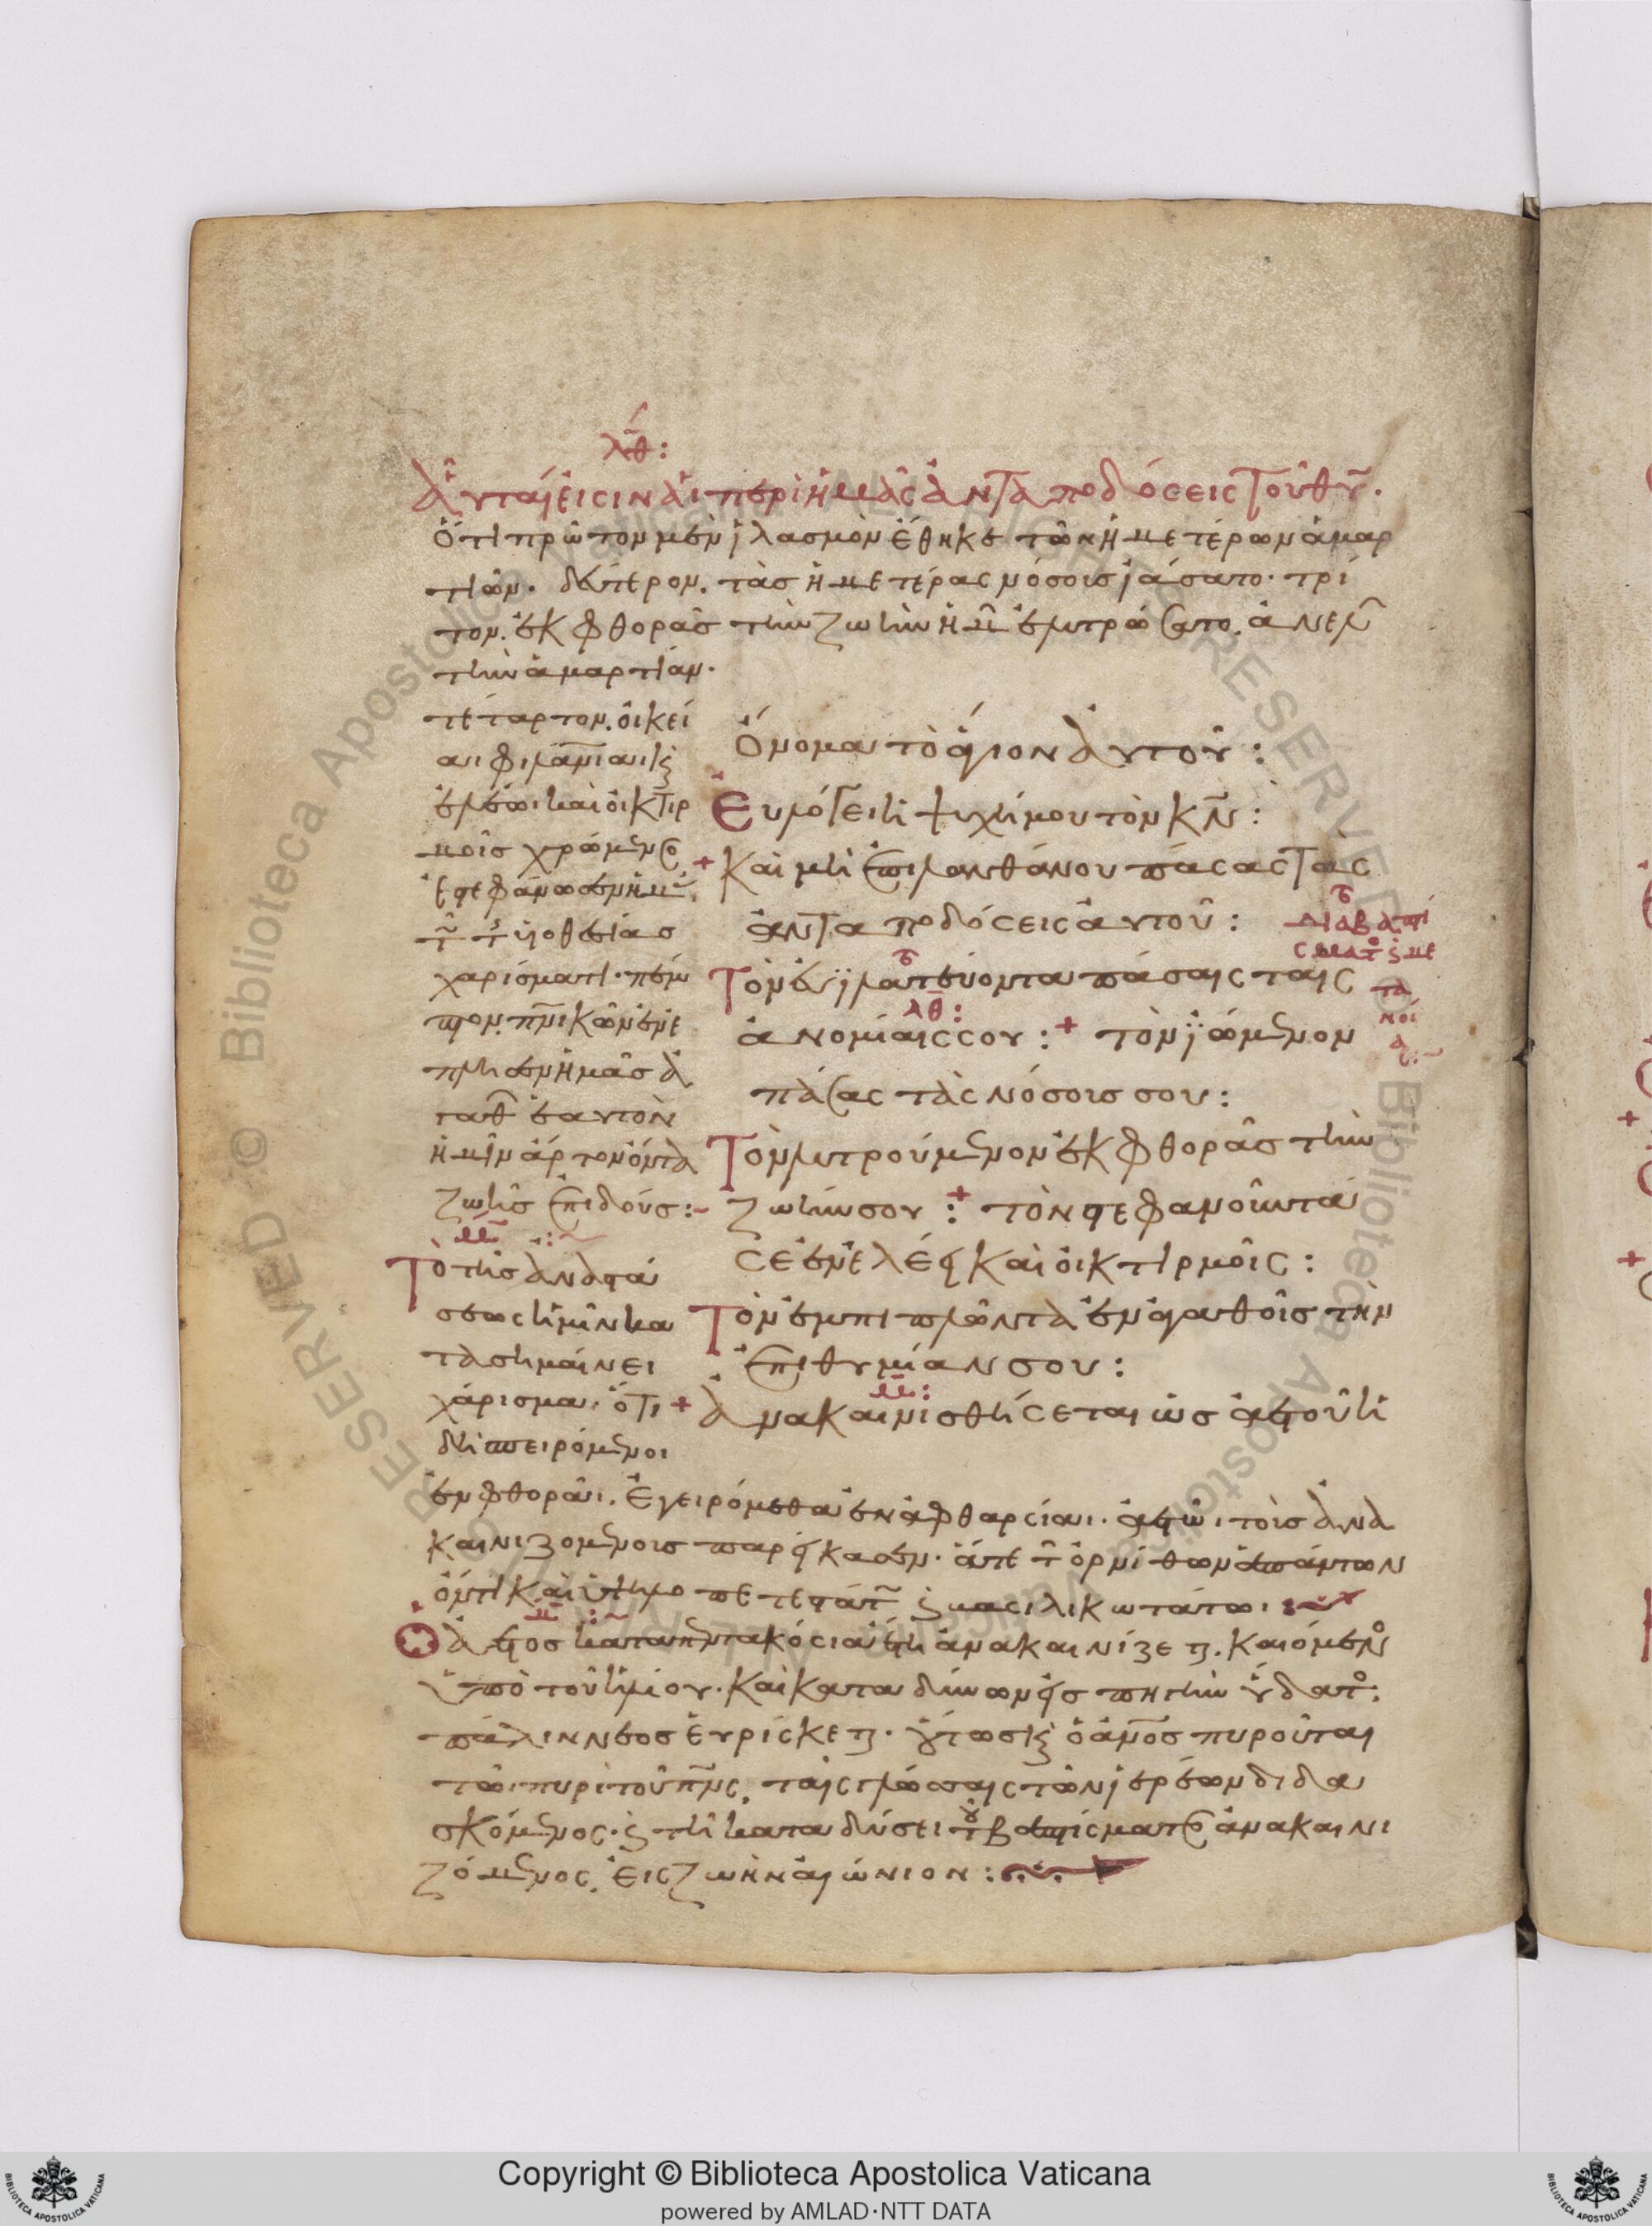 λθ:
Ἀῦταί εἰσιν αἱ περὶ ἡμᾶς ἀνταποδόσεις τοῦ θυ.
Ὅτι πρῶτον μὲν ἱλασμὸν ἔθηκε τῶν ἡμετέρων ἁμαρ
τιῶν. δεύτερον. τὰς ἡμετέρας νόσους ἰάσατο. τρί
τον. ἐκ φθορᾶς τὴν ζωὴν ἡμ ἐλυτρώσατο. ἀνελ
τὴν ἁμαρτίαν.
τέταρτον. οἰκεί
αι φιλανίαι κ
ἐλέωι καὶ οἰκτιρ
μοῖς χρώμενος
ἐστεφάνωσεν ἡμ
τ τ υἱοθεσίας
χαρίσματι. πέμ
πτον. πνικῶν ἐνέ
πλησεν ἡμᾶς ἀ
γαθ ἑαυτὸν
ἡμῖν ἄρτον ὄντα
ζωῆς ἐπιδούς:
μ:
Τὸ τῆς ἀναστά
σεως ἡμῖν κα
τασημαίνει
χάρισμα. ὅτι
δὴ σπειρόμενοι
ὄνομα τὸ ἅγιον αὐτοῦ:
Εὐλόγει ἡ ψυχή μου τὸν κν:
+ καὶ μὴ ἐπιλανθάνου πάσας τὰς
ἀνταποδόσεις αὐτοῦ:
Τὸν εὐϊλατεύοντα πάσαις ταῖς
λθ:
ἀνομίαις σου: + τὸν ϊώμενον
πάσας τὰς νόσους σου:
Τὸν λυτρούμενον ἐκ φθορᾶς τὴν
ζωήν σου: + τὸν στεφανοῦντά
σε ἐν ἐλέει καὶ οἰκτιρμοῖς:
Τὸν ἐμπιπλῶντα ἐν ἀγαθοῖς τὴν
ἐπιθυμίαν σου:
μ:
+ Ἀνακαινισθήσεται ὡς ἀετοῦ ἡ
Διαβαπτί
σματος με
τα
νοί
ας:
ἐν φθορᾶι. ἐγειρόμεθα ἐν ἀφθαρσίαι. ἀετῶι τοῖς ἀνα
καινιζομένοις παρείκασεν. ἅτε τ ὀρνίθων ἁπάντων
ὄντι καὶ ὑψιπετεστάτ βασιλικωτάτωι
μ:
Ὁ ἀετὸς κατὰ πεντακόσια ἔτη ἀνακαινίζεται. καιόμενος
ὑπὸ τοῦ ἡλίου. καὶ καταδύνων εἰς πηγὴν ὕδατος.
πάλιν νέος εὑρίσκεται. οὕτως κ ὁ ανος πυροῦται
τῶι πυρὶ τοῦ πνς, ταῖς γλώσσαις τῶν ἱερέων διδα
σκόμενος. τῆ καταδύσει τοῦ βαπτίσματος ἀνακαινι
ζόμενος, εἰς ζωὴν αἰώνιον:
Copyright © Biblioteca Apostolica Vaticana
powered by AMLAD·NTT DATA